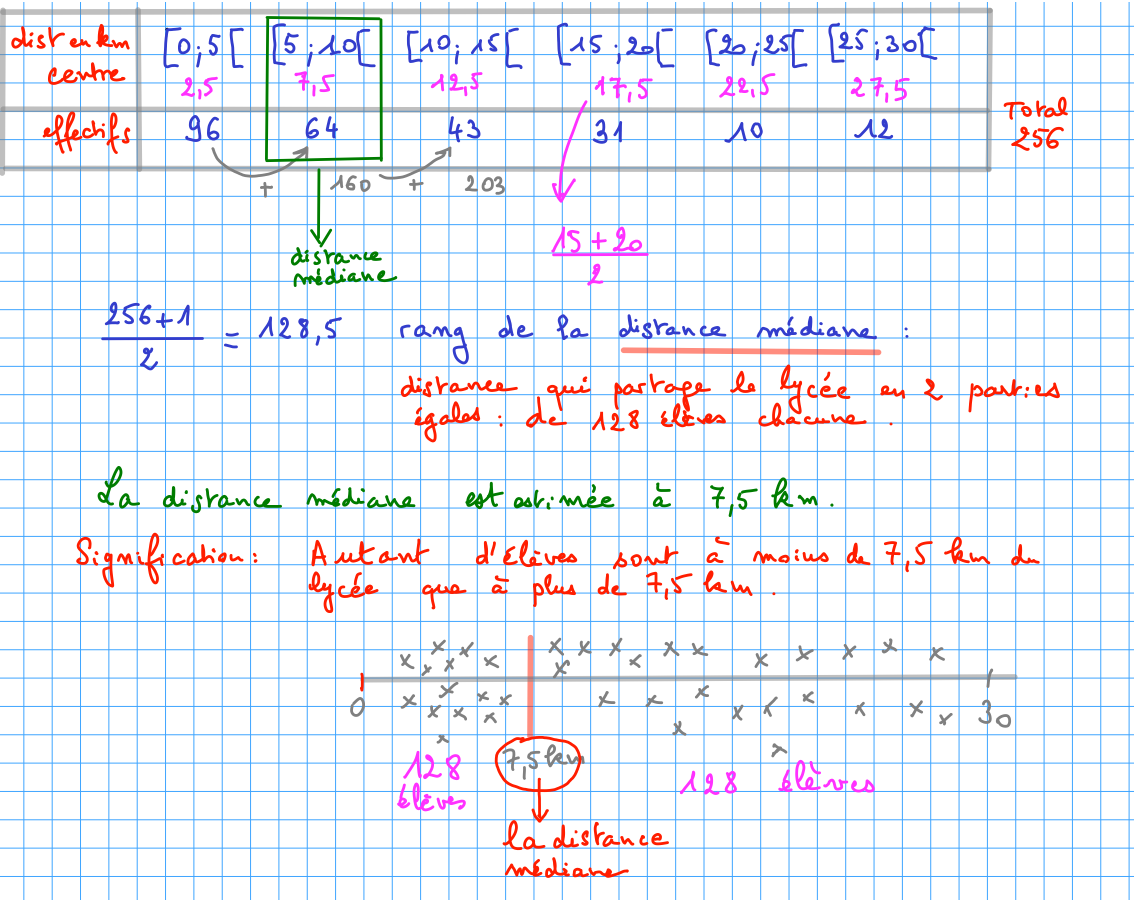 dist en km [0;5[ [5;10[ [10;15[ [15;20[ [20;25[ [25;30[
centre 2,5 7,5 12,5 17,5 22,5 27,5
effectifs 96 64 43 31 10 12
Total
256
+ 160 + 203
15 + 20
2
distance
médiane
256+1
2
= 128,5 rang de la distance médiane :
distance qui partage le lycée en 2 parties
égales : de 128 élèves chacune.
La distance médiane est estimée à 7,5 km.
Signification : Autant d'élèves sont à moins de 7,5 km du
lycée que à plus de 7,5 km.
0 30
128
élèves
7,5 km
128 élèves
la distance
médiane